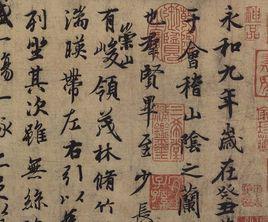 永和九年歲在癸丑
于會稽山陰之蘭
也群賢畢至少長
有崇山峻領茂林脩竹
湍暎帶左右引以
列坐其次雖無絲
一觴一詠